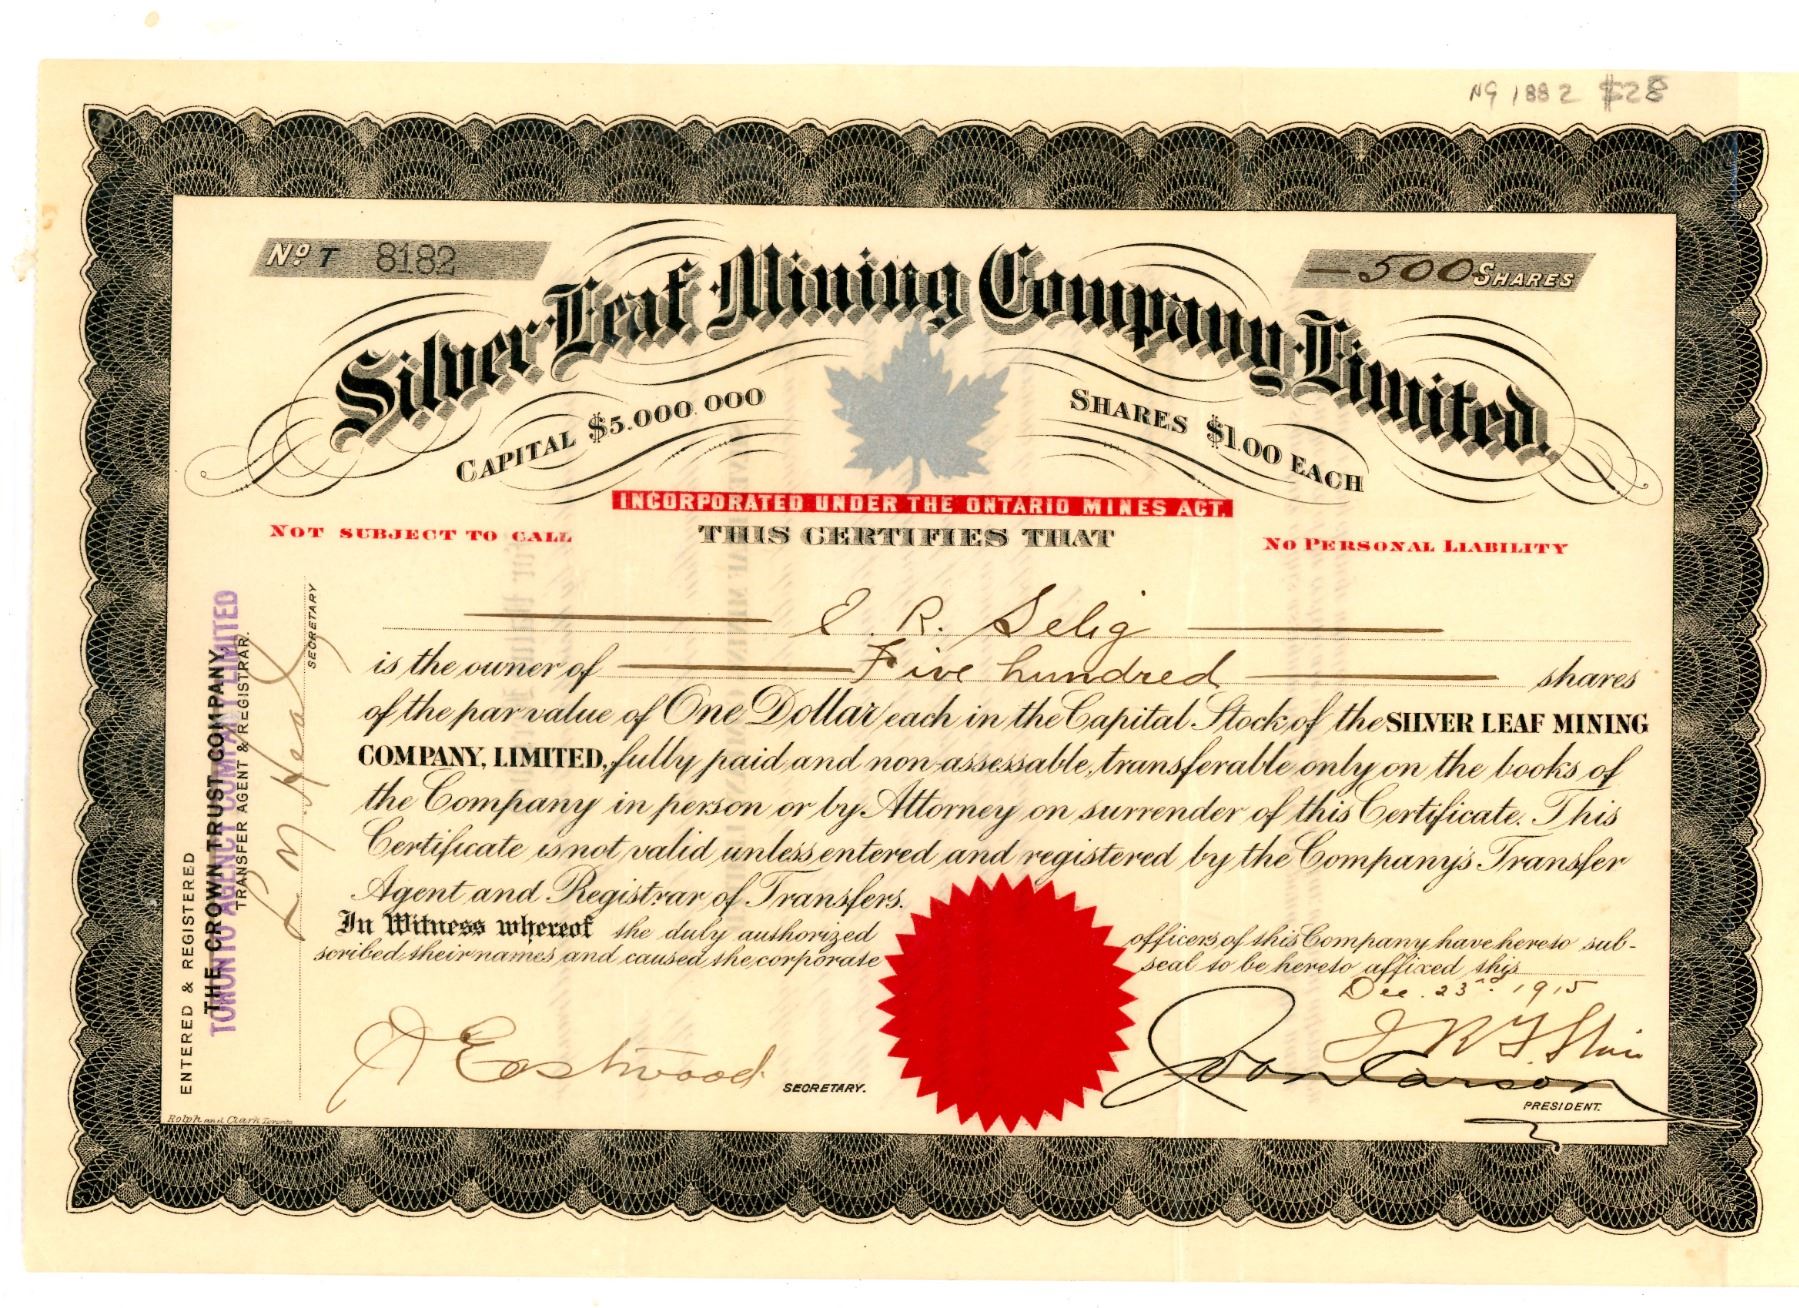 NG 1882 $28
No T 8182
— 500 SHARES
Silver Leaf Mining Company Limited.
CAPITAL $5.000.000
SHARES $1.00 EACH
INCORPORATED UNDER THE ONTARIO MINES ACT.
NOT SUBJECT TO CALL
THIS CERTIFIES THAT
NO PERSONAL LIABILITY
E. R. Selig
is the owner of Five hundred shares
of the par value of One Dollar each in the Capital Stock of the SILVER LEAF MINING
COMPANY, LIMITED, fully paid and non-assessable, transferable only on the books of
the Company in person or by Attorney on surrender of this Certificate. This
Certificate is not valid unless entered and registered by the Company's Transfer
Agent and Registrar of Transfers.
In Witness whereof the duly authorized officers of this Company have hereto sub-
scribed their names and caused the corporate seal to be hereto affixed this
Dec. 23rd. 1915
Eastwood
SECRETARY.
PRESIDENT.
ENTERED & REGISTERED
THE CROWN TRUST COMPANY
TORONTO AGENCY COMPANY LIMITED
TRANSFER AGENT & REGISTRAR.
SECRETARY
Rolph and Clark Toronto